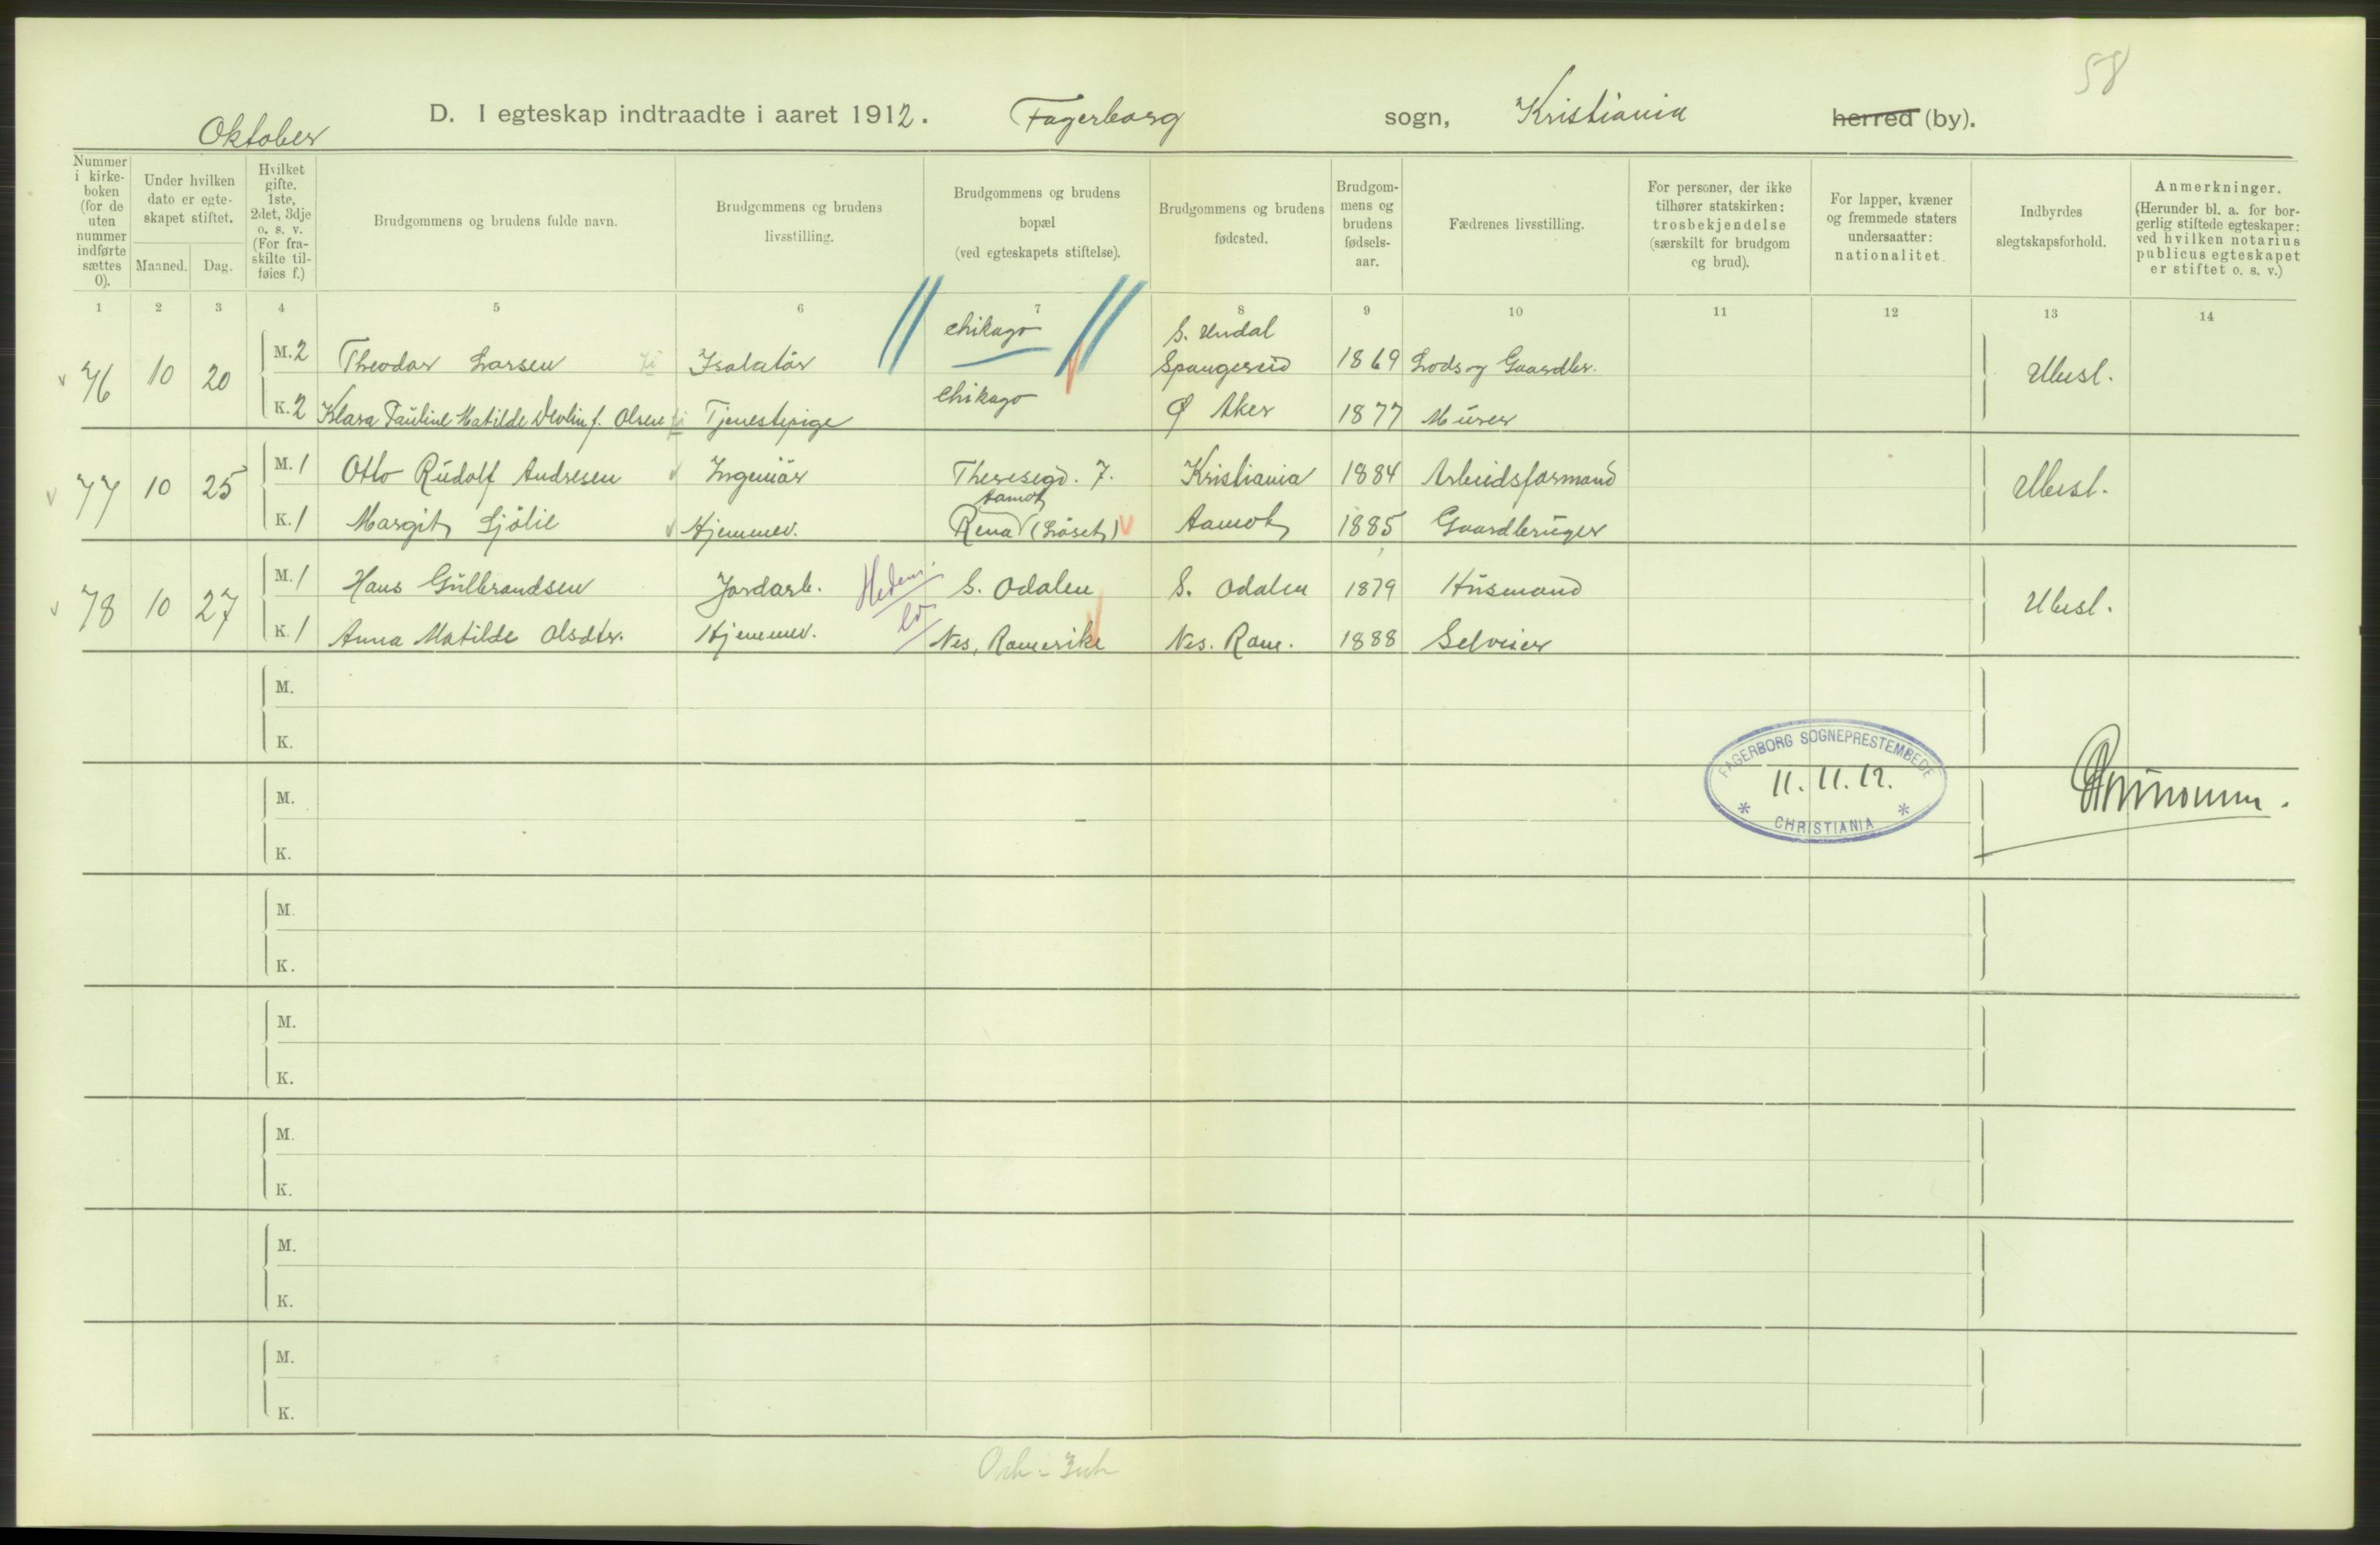 58
Oktober
D. I egteskap indtraadte i aaret 1912. Fagerborg sogn, Kristiania herred (by).
Nummer i kirkeboken (for de uten nummer indførte sættes 0).
Under hvilken dato er egteskapet stiftet.
Maaned. Dag.
Hvilket gifte. 1ste, 2det, 3dje o. s. v. (For fraskilte tilføies f.)
Brudgommens og brudens fulde navn.
Brudgommens og brudens livsstilling.
Brudgommens og brudens bopæl (ved egteskapets stiftelse).
Brudgommens og brudens fødested.
Brudgommens og brudens fødselsaar.
Fædrenes livsstilling.
For personer, der ikke tilhører statskirken: trosbekjendelse (særskilt for brudgom og brud).
For lapper, kvæner og fremmede staters undersaatter: nationalitet
Indbyrdes slegtskapsforhold.
Anmerkninger. (Herunder bl. a. for borgerlig stiftede egteskaper: ved hvilken notarius publicus egteskapet er stiftet o. s. v.)
1 2 3 4 5 6 7 8 9 10 11 12 13 14
76 10 20 M. 2 Theodor Larsen Isolatör Chikago S. Undal Spangereid 1869 Lods og Gaardbr. Ubesl.
K. 2 Klara Pauline Matilde Devlin f. Olsen Tjenestepige Chikago Ø Aker 1877 Murer
77 10 25 M. 1 Otto Rudolf Andresen Ingeniör Theresegd. 7. Kristiania 1884 Arbeidsformand Ubesl.
Aamot
K. 1 Margit Sjölie Hjemmev. Rena (Löset) Aamot 1885 Gaardbruger
78 10 27 M. 1 Hans Gulbrandsen Jordarb. Hedem. S. Odalen S. Odalen 1879 Husmand Ubesl.
K. 1 Anna Matilde Olsdtr. Hjemmev. Nes, Romerike Nes. Rom. 1888 Selveier
M.
K.
M.
K.
M.
K.
M.
K.
M.
K.
M.
K.
M.
K.
FAGERBORG SOGNEPRESTEMBEDE
11. 11. 12.
* CHRISTIANIA *